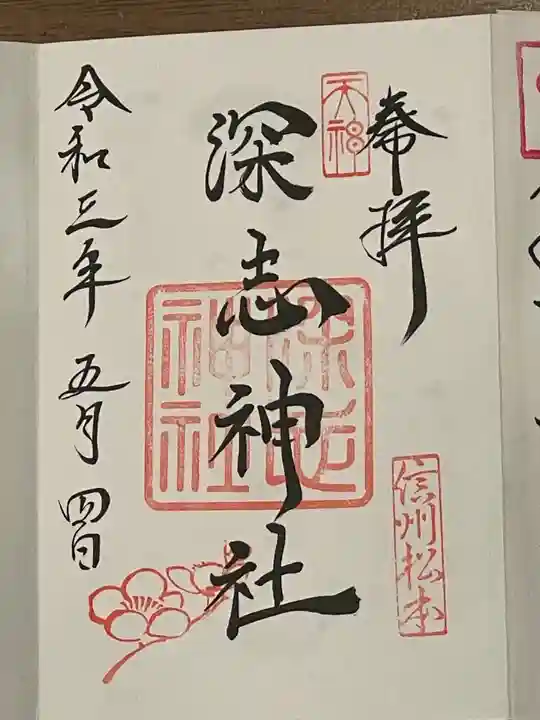 奉拝
天神
深志神社
深志神社
信州松本
令和三年 五月 四日